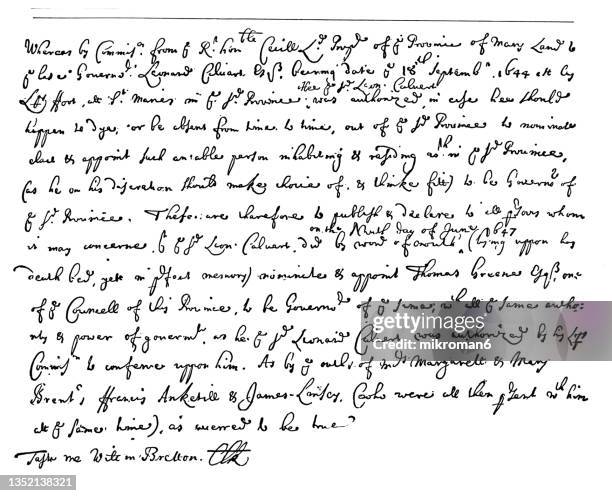 Whereas by Commis. from ye Rt. honble Cecill Ld. Propr of ye Province of Mary Land to
ye late Governr. Leonard Calvert Esqr. bearing date ye 18th Septembr. 1644 att his
Lps ffort, at St. Maries in ye sd. Province
Hee ye sd. Leon. Calvert
was authorized in case hee should
happen to dye, or be absent from time to time, out of ye sd. Province to nominate
elect & appoint such an able person inhabiting & residing within ye sd. Province,
(as he in his discretion should make choice of, & thinke fitt) to be Governr. of
ye sd. Province. These are therefore to publish & declare to all psons whom
on the Ninth day of June, 1647
it may concerne yt ye sd. Leon. Calvert, did by word of mouth (lying uppon his
death bed, yett in pfect memory) nominate & appoint Thomas Greene Esqr. one
of ye Councell of this Province, to be Governr. of ye same, wth all ye same autho-
rity & power of governmt. as he ye sd. Leonard Calvert was authorized by his Lps
Commisn to conferre uppon him. As by ye oaths of Mrs Margarett & Mary
Brents, ffrancis Ankitill & James Linsey, (who were all then psent wth him
at ye same time), is averred to be true
Teste me Willm Bretton. Clk
GettyImages
Credit: mikroman6
1352138321